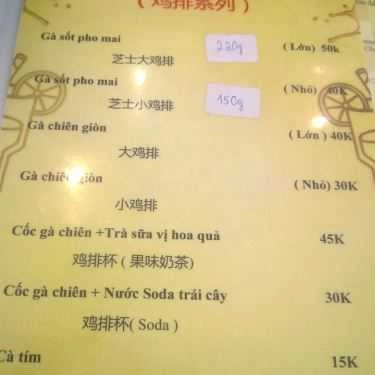 ( 鸡排系列 )
Gà sốt pho mai 220g ( Lớn) 50k
芝士大鸡排
Gà sốt pho mai 150g ( Nhỏ) 40k
芝士小鸡排
Gà chiên giòn ( Lớn ) 40K
大鸡排
Gà chiên giòn ( Nhỏ) 30K
小鸡排
Cốc gà chiên +Trà sữa vị hoa quả 45K
鸡排杯 ( 果味奶茶)
Cốc gà chiên + Nước Soda trái cây 30K
鸡排杯( Soda )
Cà tím 15K